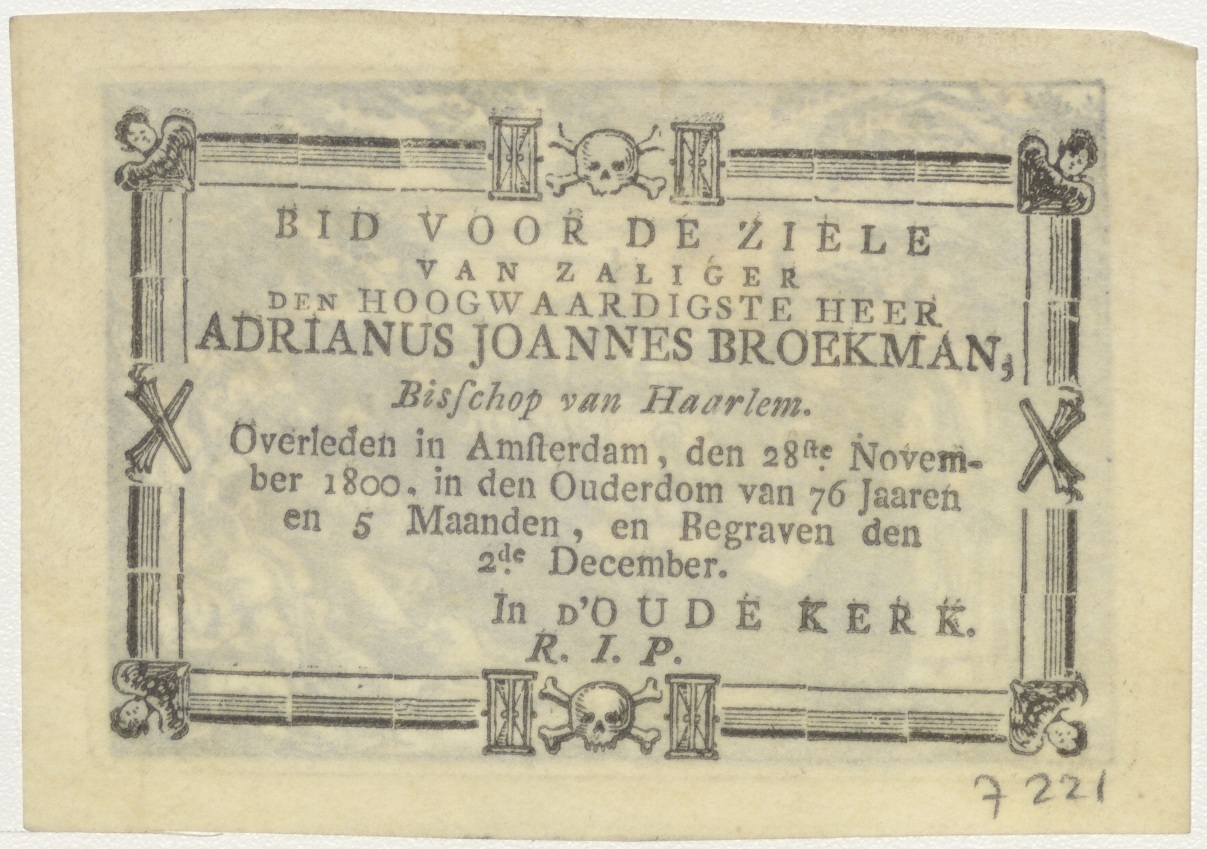 BID VOOR DE ZIELE
VAN ZALIGER
DEN HOOGWAARDIGSTE HEER
ADRIANUS JOANNES BROEKMAN,
Bisſchop van Haarlem.
Overleden in Amſterdam, den 28ſte. Novem-
ber 1800. in den Ouderdom van 76 Jaaren
en 5 Maanden, en Begraven den
2de. December.
In D'OUDE KERK.
R. I. P.
7221